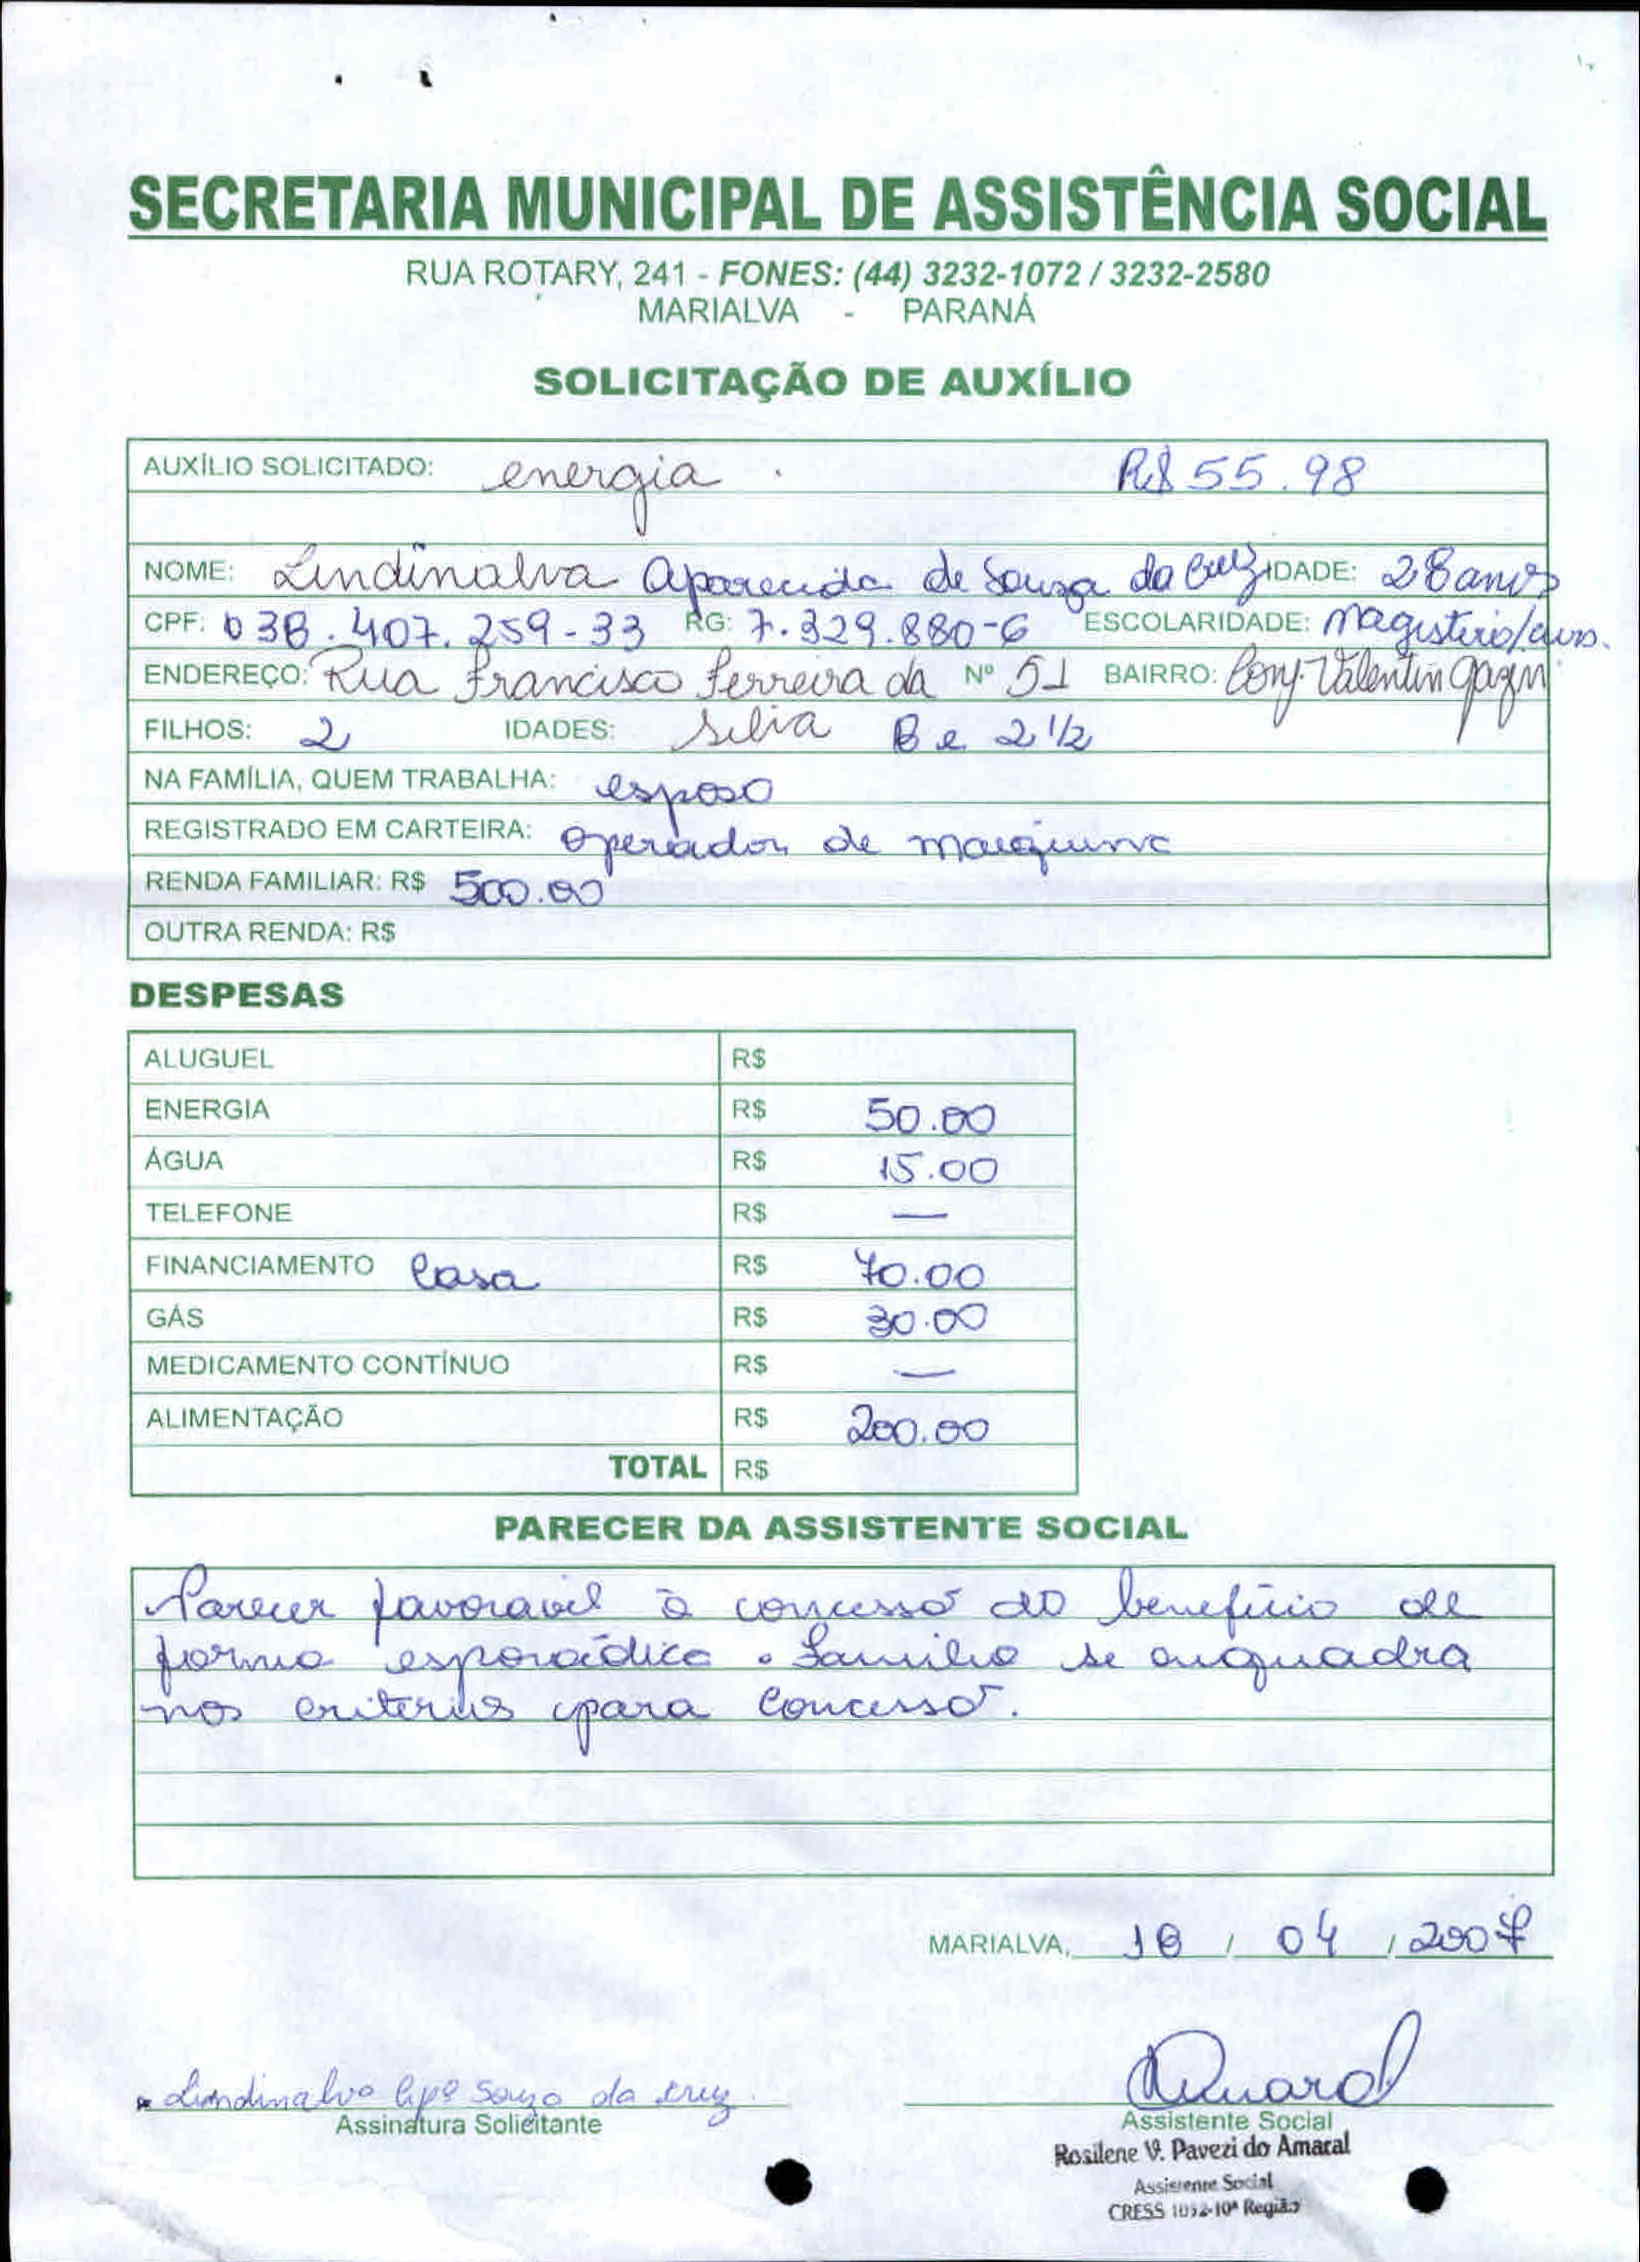 SECRETARIA MUNICIPAL DE ASSISTÊNCIA SOCIAL
RUA ROTARY, 241 - FONES: (44) 3232-1072 / 3232-2580
MARIALVA - PARANÁ
SOLICITAÇÃO DE AUXÍLIO
AUXÍLIO SOLICITADO: energia. R$ 55.98
NOME: Lindinalva Aparecida de Souza da Cruz IDADE: 28 anos
CPF: 038.407.259-33 RG: 7.329.880-6 ESCOLARIDADE: Magistério/
ENDEREÇO: Rua Francisco Ferreira da Nº 51 BAIRRO: Conj. Valentin
FILHOS: 2 IDADES: Silva 8 e 2 1/2
NA FAMÍLIA, QUEM TRABALHA: esposo
REGISTRADO EM CARTEIRA: operador de maquina
RENDA FAMILIAR: R$ 500.00
OUTRA RENDA: R$
DESPESAS
ALUGUEL R$
ENERGIA R$ 50.00
ÁGUA R$ 15.00
TELEFONE R$ —
FINANCIAMENTO Casa R$ 70.00
GÁS R$ 30.00
MEDICAMENTO CONTÍNUO R$ —
ALIMENTAÇÃO R$ 200.00
TOTAL R$
PARECER DA ASSISTENTE SOCIAL
Parecer favoravel à concessão do benefício de
forma esporádica. Familia se enquadra
nos criterios para concessão.
MARIALVA, 18 / 04 / 2007
Lindinalva Apª Souza da Cruz
Assinatura Solicitante
Amaral
Assistente Social
Rosilene V. Pavezi do Amaral
Assistente Social
CRESS 10ª Região